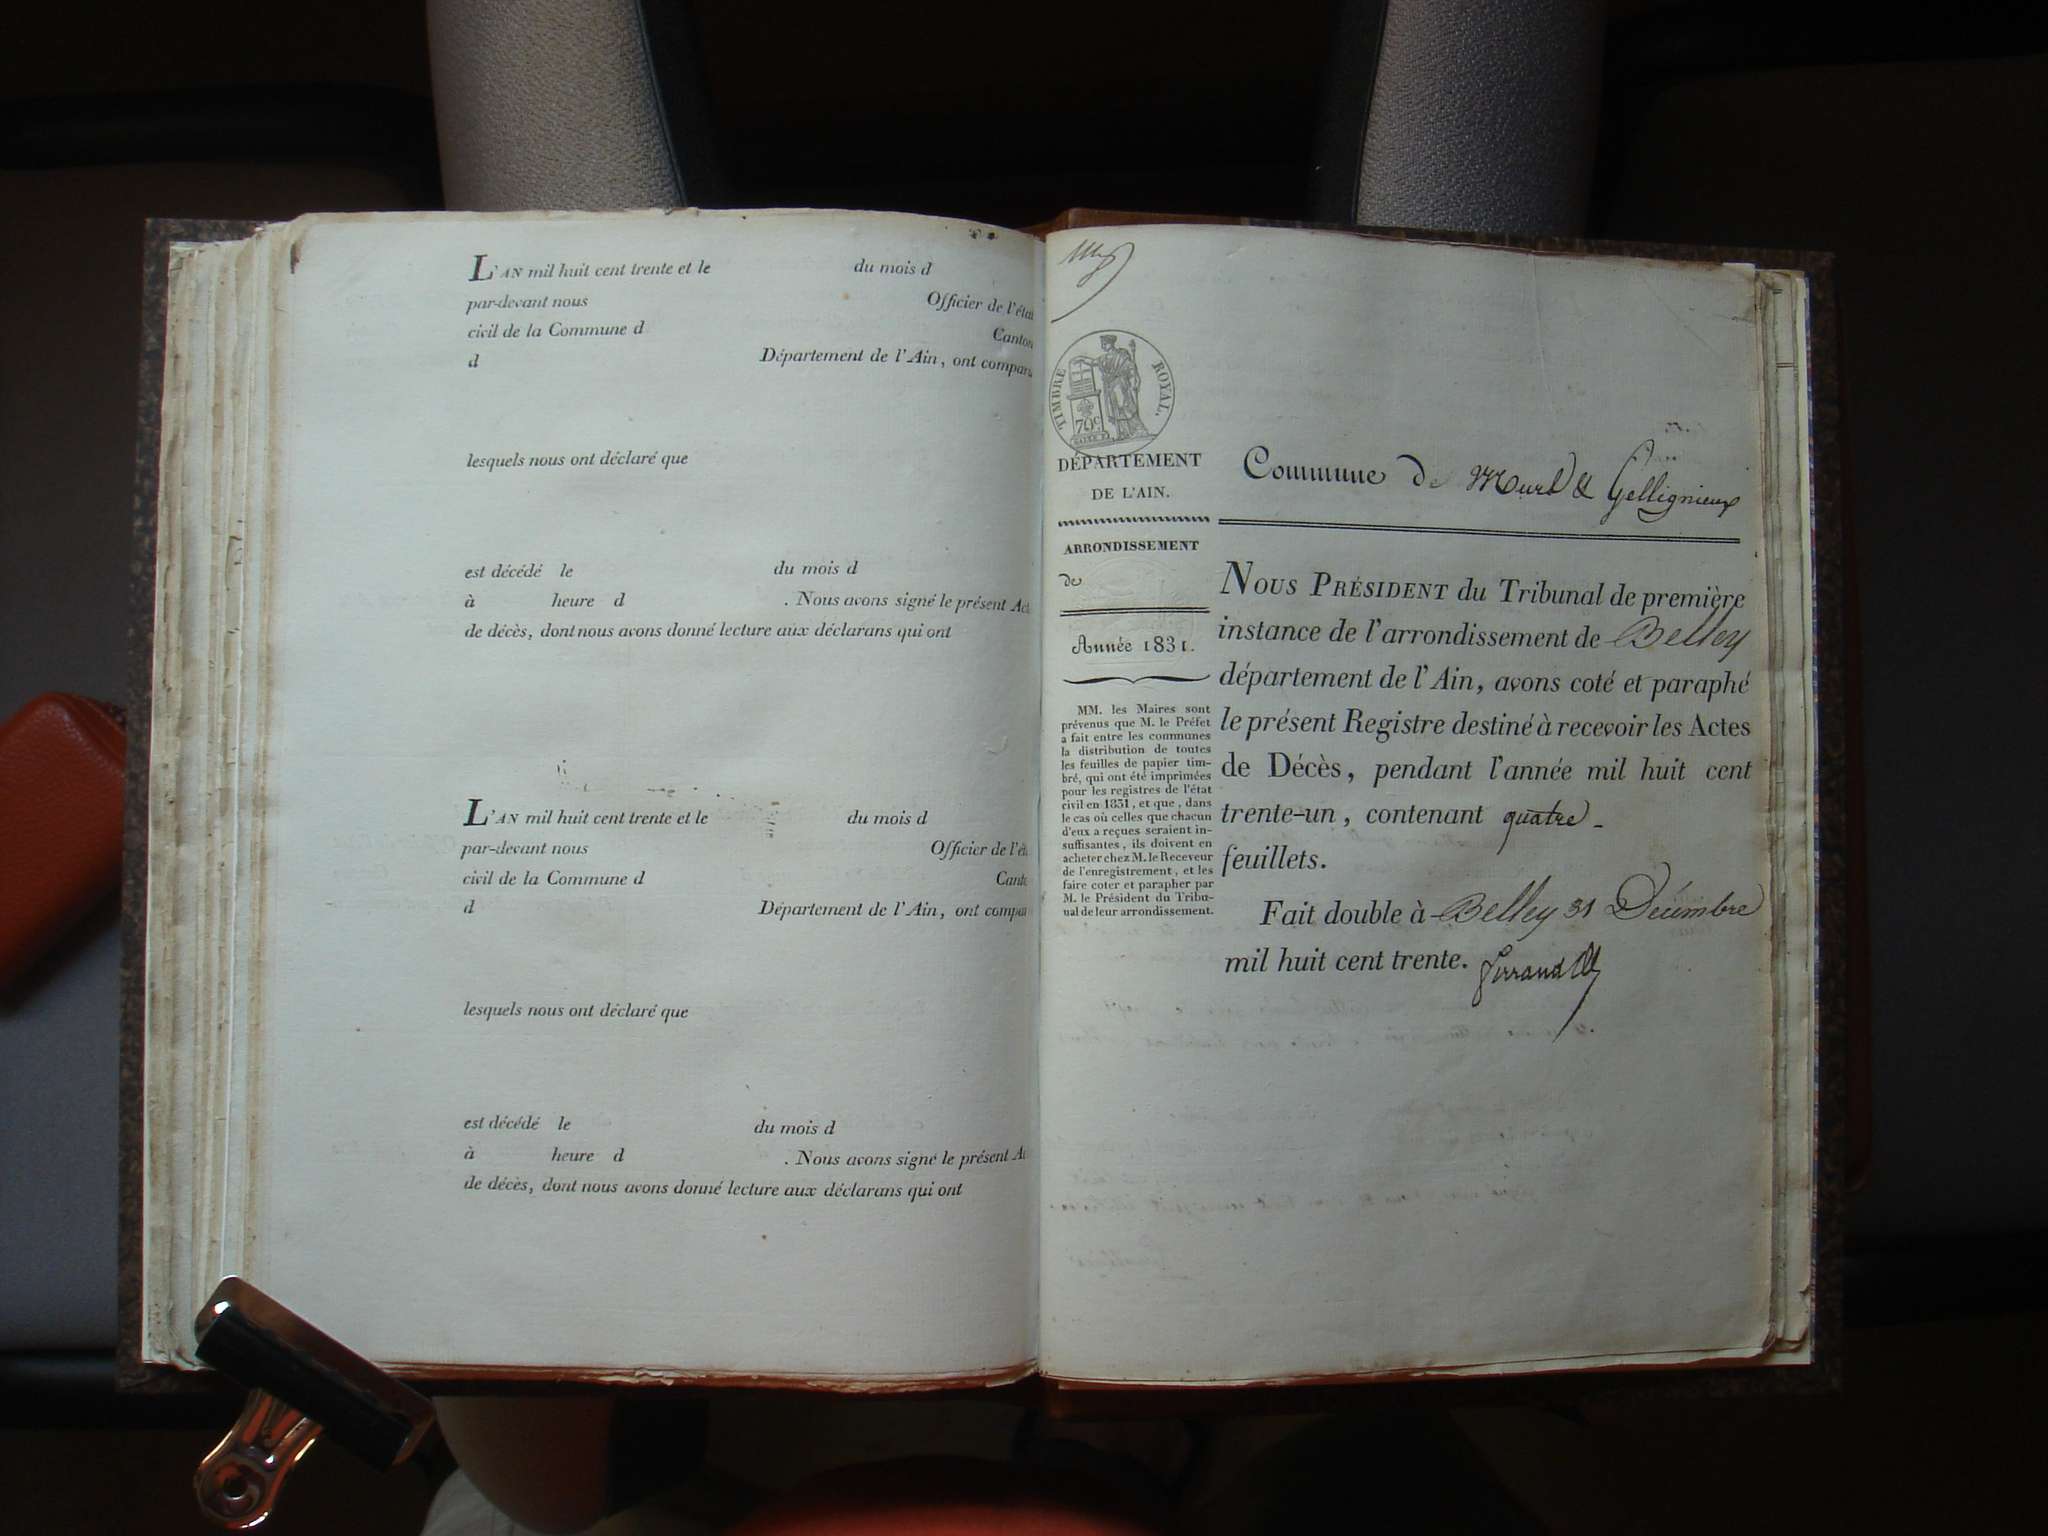 L'AN mil huit cent trente et le du mois d
par-devant nous Officier de l'état
civil de la Commune d Canton
d Département de l'Ain, ont comparu
lesquels nous ont déclaré que
est décédé le du mois d
à heure d . Nous avons signé le présent Act
de décès, dont nous avons donné lecture aux déclarans qui ont
L'AN mil huit cent trente et le du mois d
par-devant nous Officier de l'éta
civil de la Commune d Canto
d Département de l'Ain, ont compar
lesquels nous ont déclaré que
est décédé le du mois d
à heure d . Nous avons signé le présent Ac
de décès, dont nous avons donné lecture aux déclarans qui ont
TIMBRE ROYAL.
70c
DÉPARTEMENT
DE L'AIN.
ARRONDISSEMENT
de
Année 1831.
MM. les Maires sont
prévenus que M. le Préfet
a fait entre les communes
la distribution de toutes
les feuilles de papier tim-
bré, qui ont été imprimées
pour les registres de l'état
civil en 1831, et que, dans
le cas où celles que chacun
d'eux a reçues seraient in-
suffisantes, ils doivent en
acheter chez M. le Receveur
de l'enregistrement, et les
faire coter et parapher par
M. le Président du Tribu-
nal de leur arrondissement.
Commune de Murs & Gellignieux
NOUS PRÉSIDENT du Tribunal de première
instance de l'arrondissement de Belley
département de l'Ain, avons coté et paraphé
le présent Registre destiné à recevoir les Actes
de Décès, pendant l'année mil huit cent
trente-un, contenant quatre
feuillets.
Fait double à Belley 31 Décembre
mil huit cent trente. Ferrand